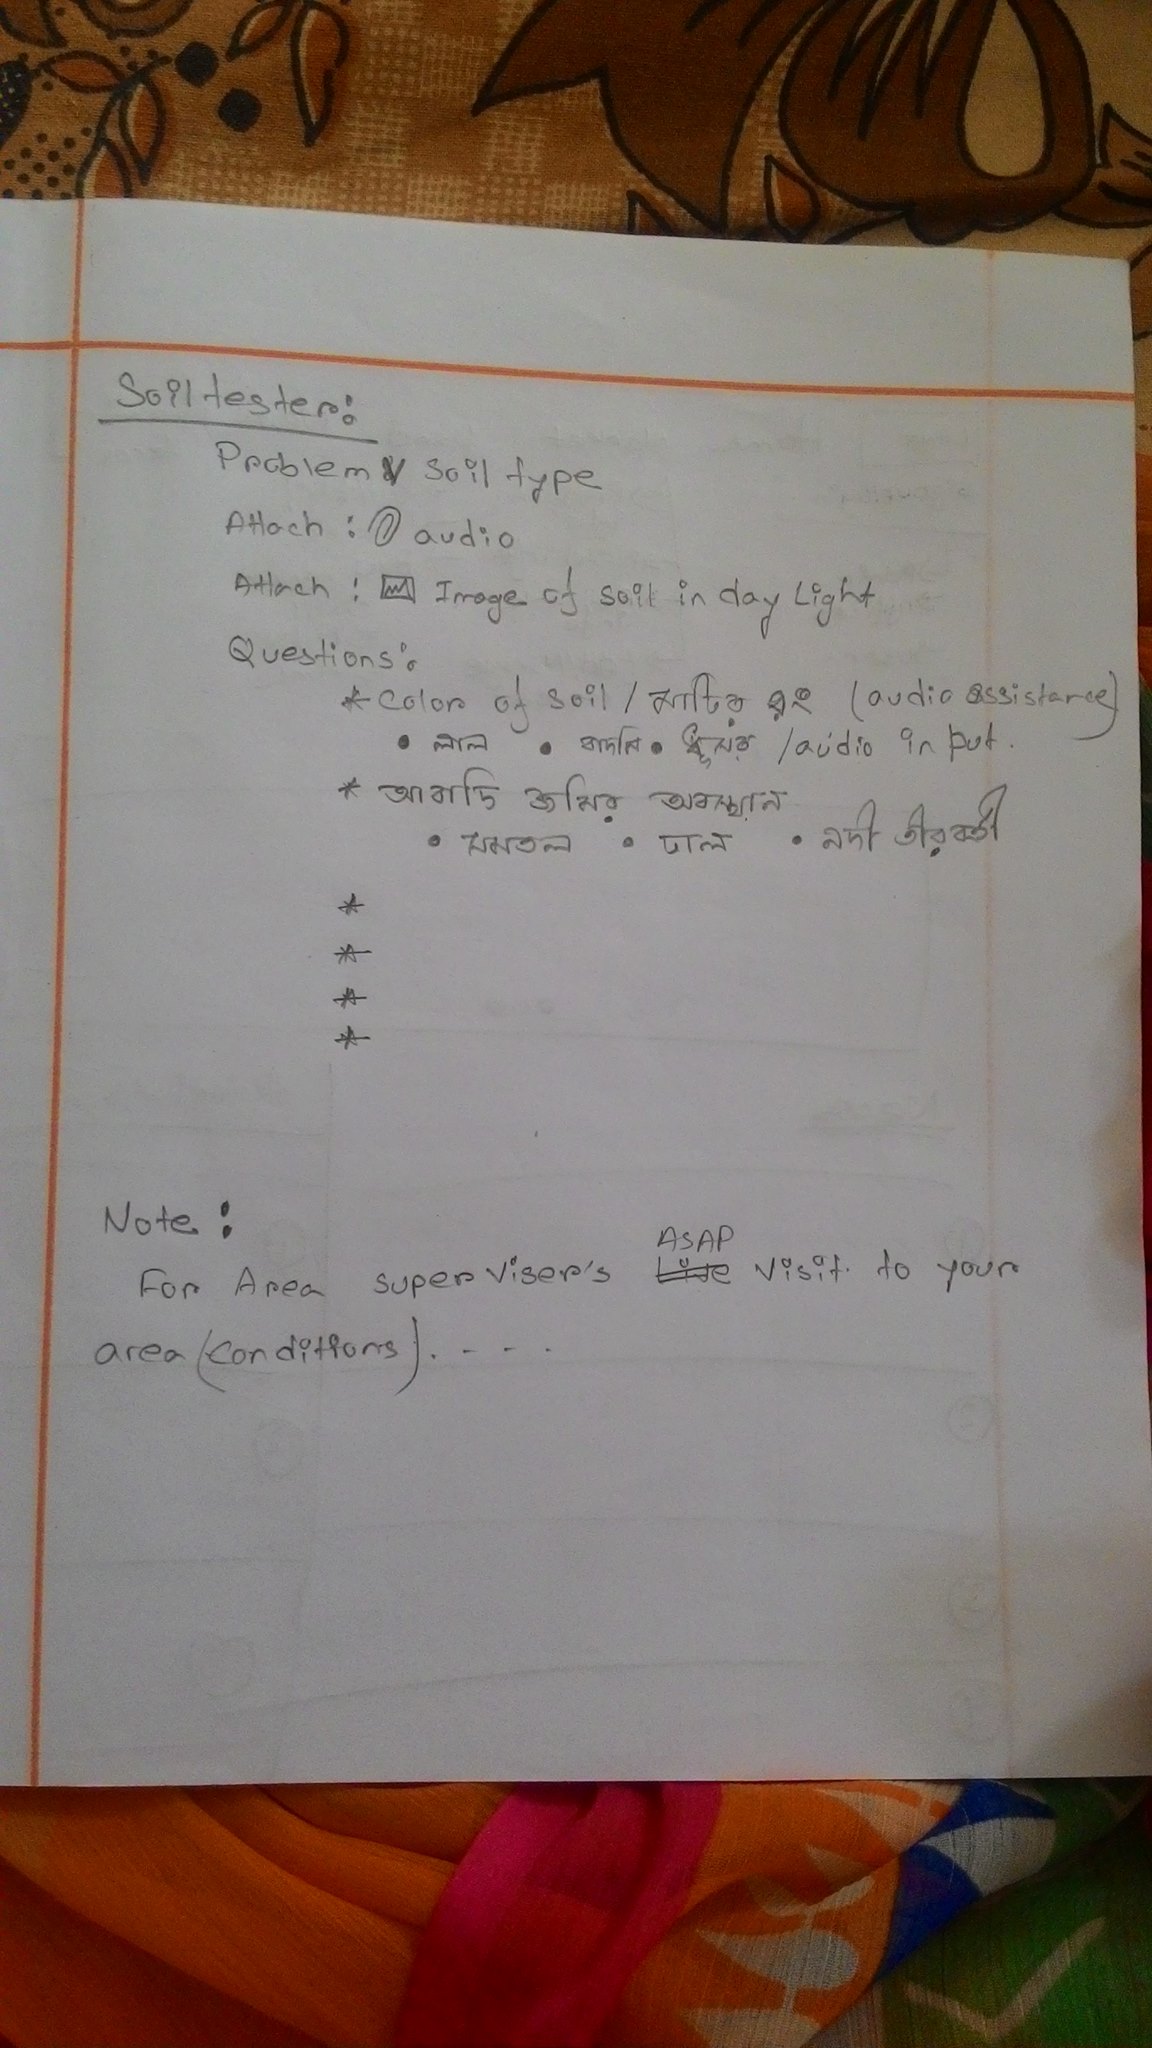 Soil tester:
Problem soil type
Attach : audio
Attach : Image of soil in day Light
Questions:
* Color of soil / মাটির রং (audio assistance)
• লাল • বাদামি • ধূসর / audio input.
* আবাদি জমির অবস্থান
• সমতল • ঢাল • নদী তীরবর্তী
*
*
*
*
Note :
ASAP
For Area superviser's visit to your
area (conditions). - - -.